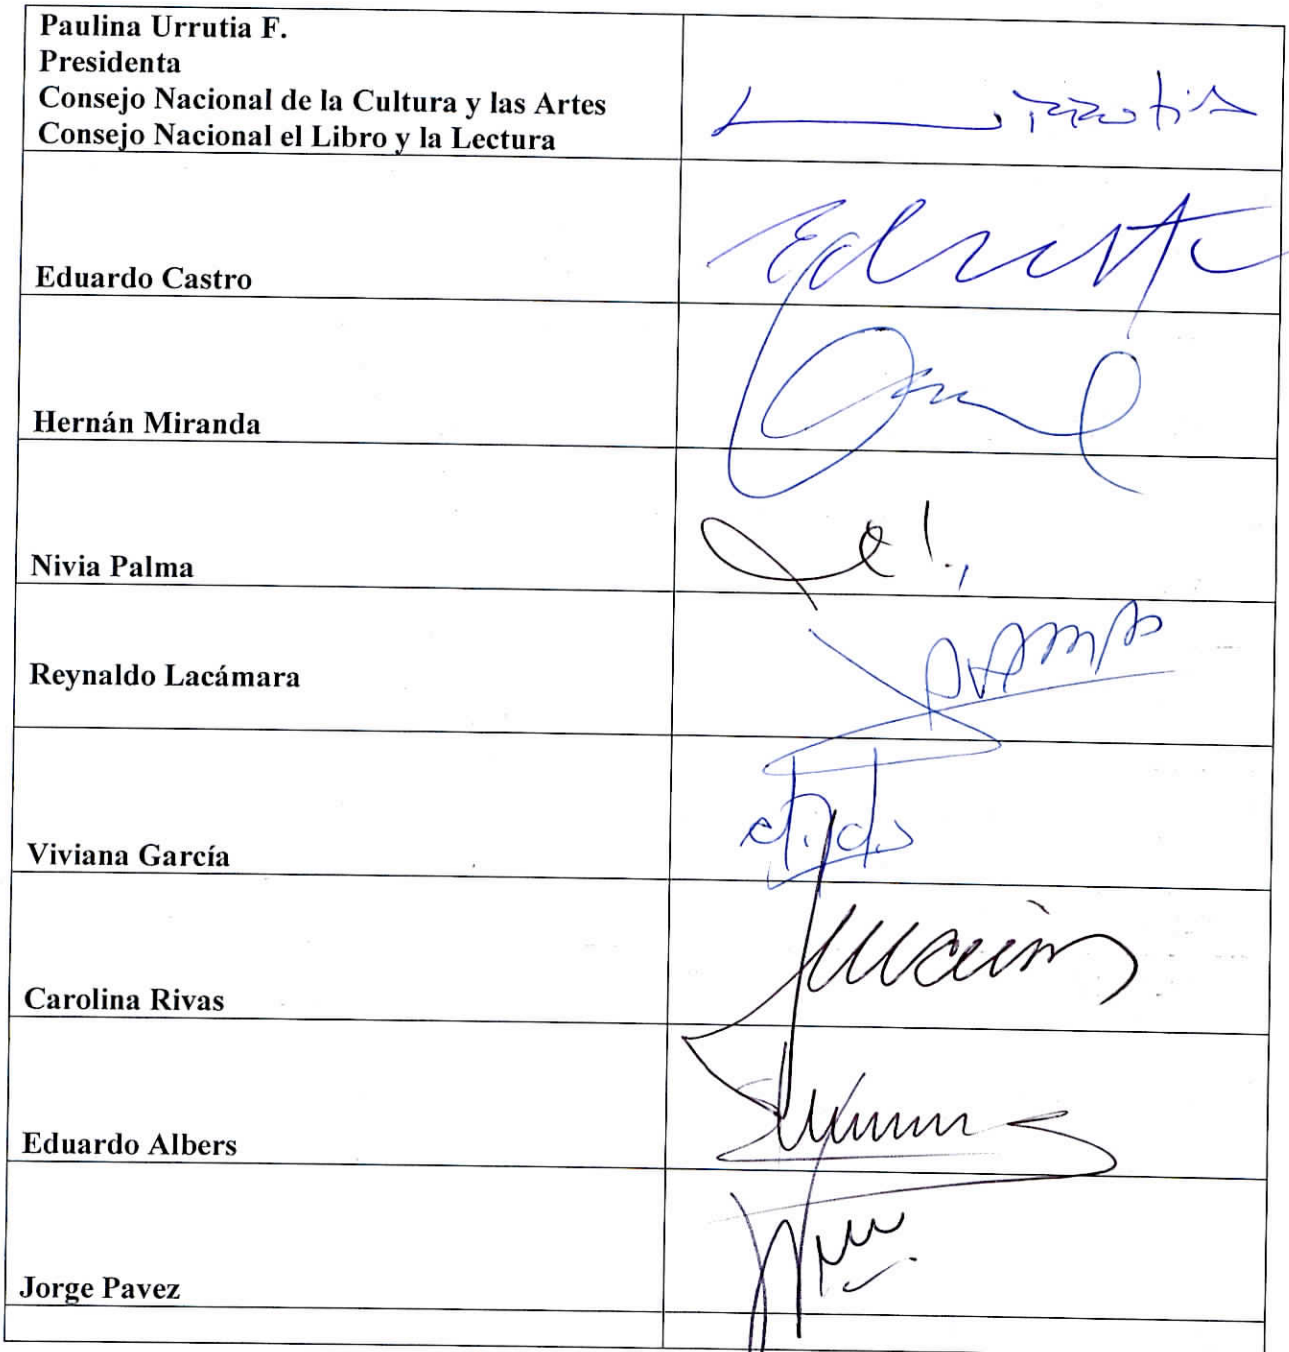 Paulina Urrutia F.
Presidenta
Consejo Nacional de la Cultura y las Artes
Consejo Nacional el Libro y la Lectura
Eduardo Castro
Hernán Miranda
Nivia Palma
Reynaldo Lacámara
Viviana García
Carolina Rivas
Eduardo Albers
Jorge Pavez